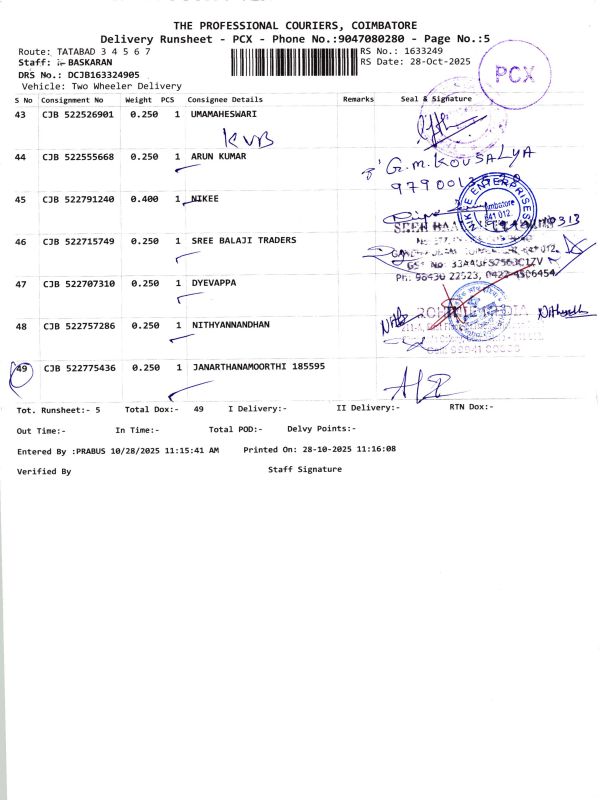 THE PROFESSIONAL COURIERS, COIMBATORE
Delivery Runsheet - PCX - Phone No.:9047080280 - Page No.:5
Route: TATABAD 3 4 5 6 7
RS No.: 1633249
Staff: BASKARAN
RS Date: 28-Oct-2025
DRS No.: DCJB163324905
Vehicle: Two Wheeler Delivery
PCX
S No Consignment No Weight PCS Consignee Details Remarks Seal & Signature
43 CJB 522526901 0.250 1 UMAMAHESWARI
KVB
44 CJB 522555668 0.250 1 ARUN KUMAR
G.M.KOUSALYA
45 CJB 522791240 0.400 1 NIKEE
NIKEE ENTERPRISES
641 012.
46 CJB 522715749 0.250 1 SREE BALAJI TRADERS
Ph: 98430 22523, 0422-4506454
47 CJB 522707310 0.250 1 DYEVAPPA
48 CJB 522757286 0.250 1 NITHYANNANDHAN
49 CJB 522775436 0.250 1 JANARTHANAMOORTHI 185595
Tot. Runsheet:- 5 Total Dox:- 49 I Delivery:- II Delivery:- RTN Dox:-
Out Time:- In Time:- Total POD:- Delvy Points:-
Entered By :PRABUS 10/28/2025 11:15:41 AM Printed On: 28-10-2025 11:16:08
Verified By Staff Signature